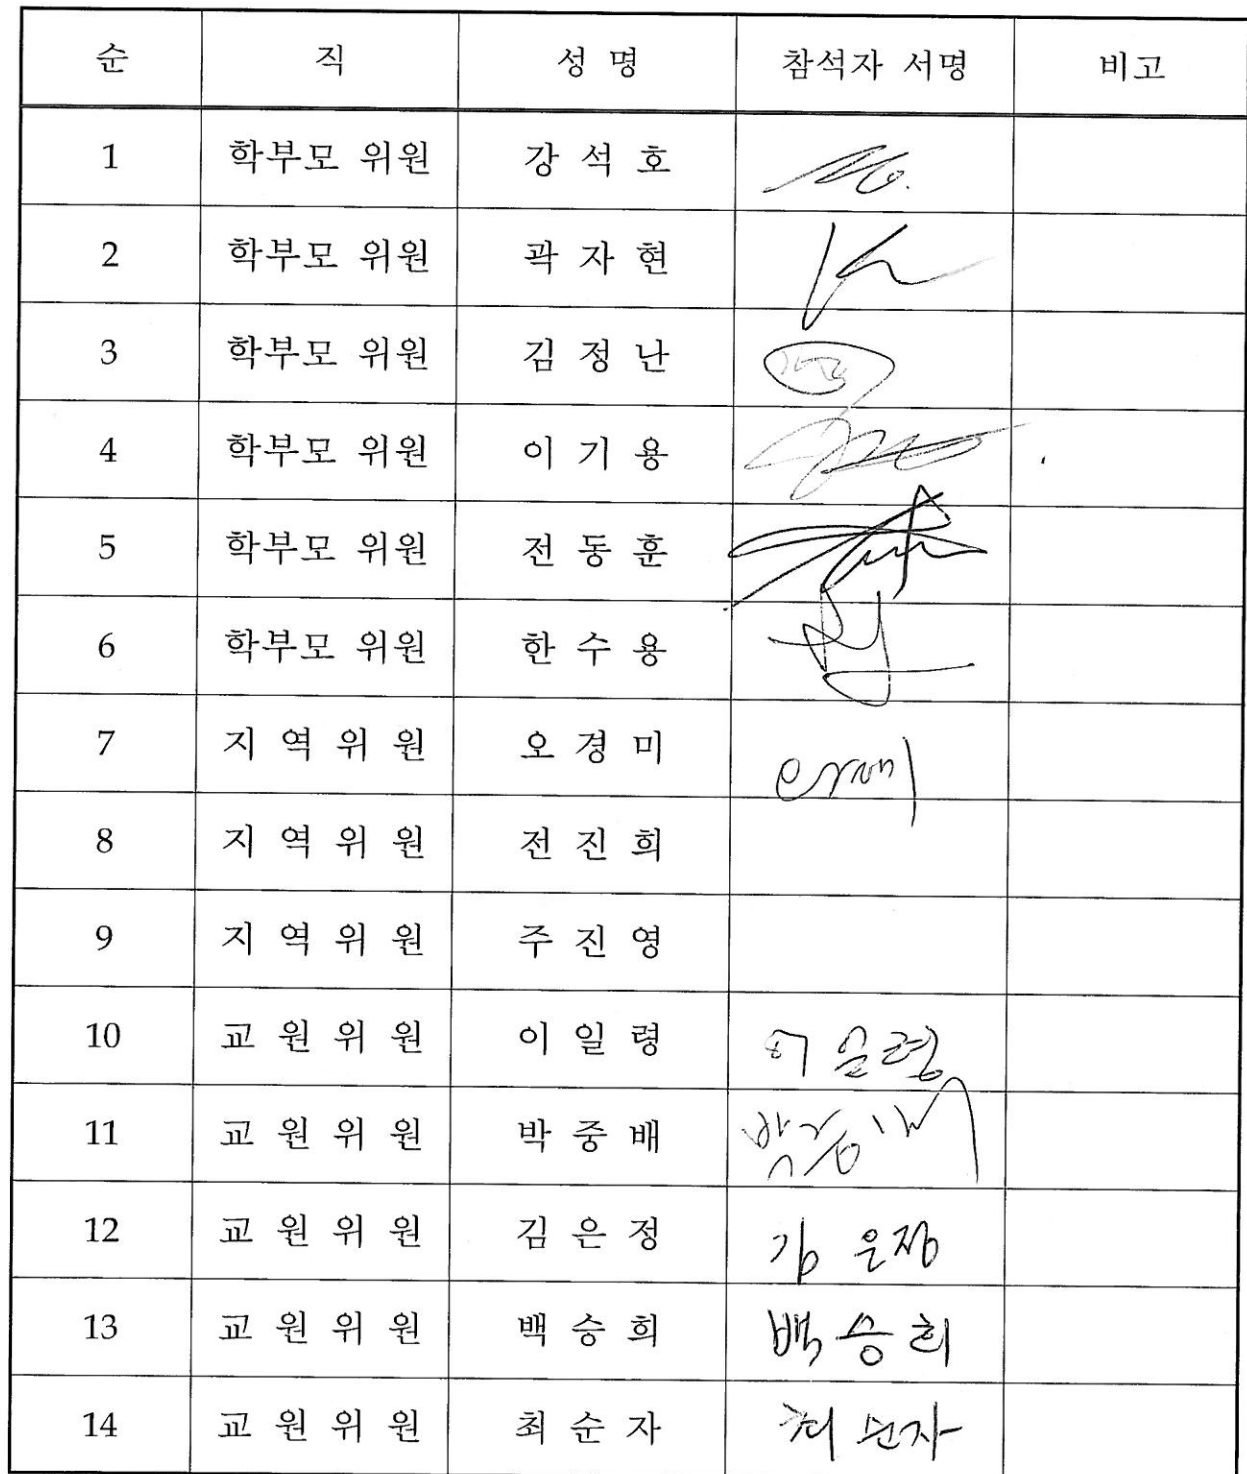 순 직 성 명 참석자 서명 비고
1 학부모 위원 강 석 호
2 학부모 위원 곽 자 현
3 학부모 위원 김 정 난
4 학부모 위원 이 기 용
5 학부모 위원 전 동 훈
6 학부모 위원 한 수 용
7 지 역 위 원 오 경 미
8 지 역 위 원 전 진 희
9 지 역 위 원 주 진 영
10 교 원 위 원 이 일 령 이 일 령
11 교 원 위 원 박 중 배 박중배
12 교 원 위 원 김 은 정 김 은정
13 교 원 위 원 백 승 희 백 승 희
14 교 원 위 원 최 순 자 최 순자